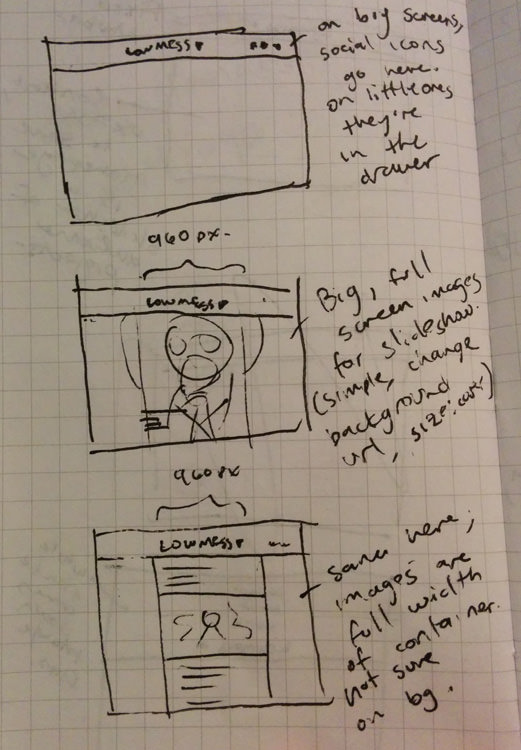 LOWMESS▾
on big screens,
social icons
go here.
on little ones
they're
in the
drawer
960px-
LOWMESS▾
Big, full
screen images
for slideshow.
(simple, change
background
url, size:cover)
960px
LOWMESS▾
same here,
images are
full width
of container.
not sure
on bg.